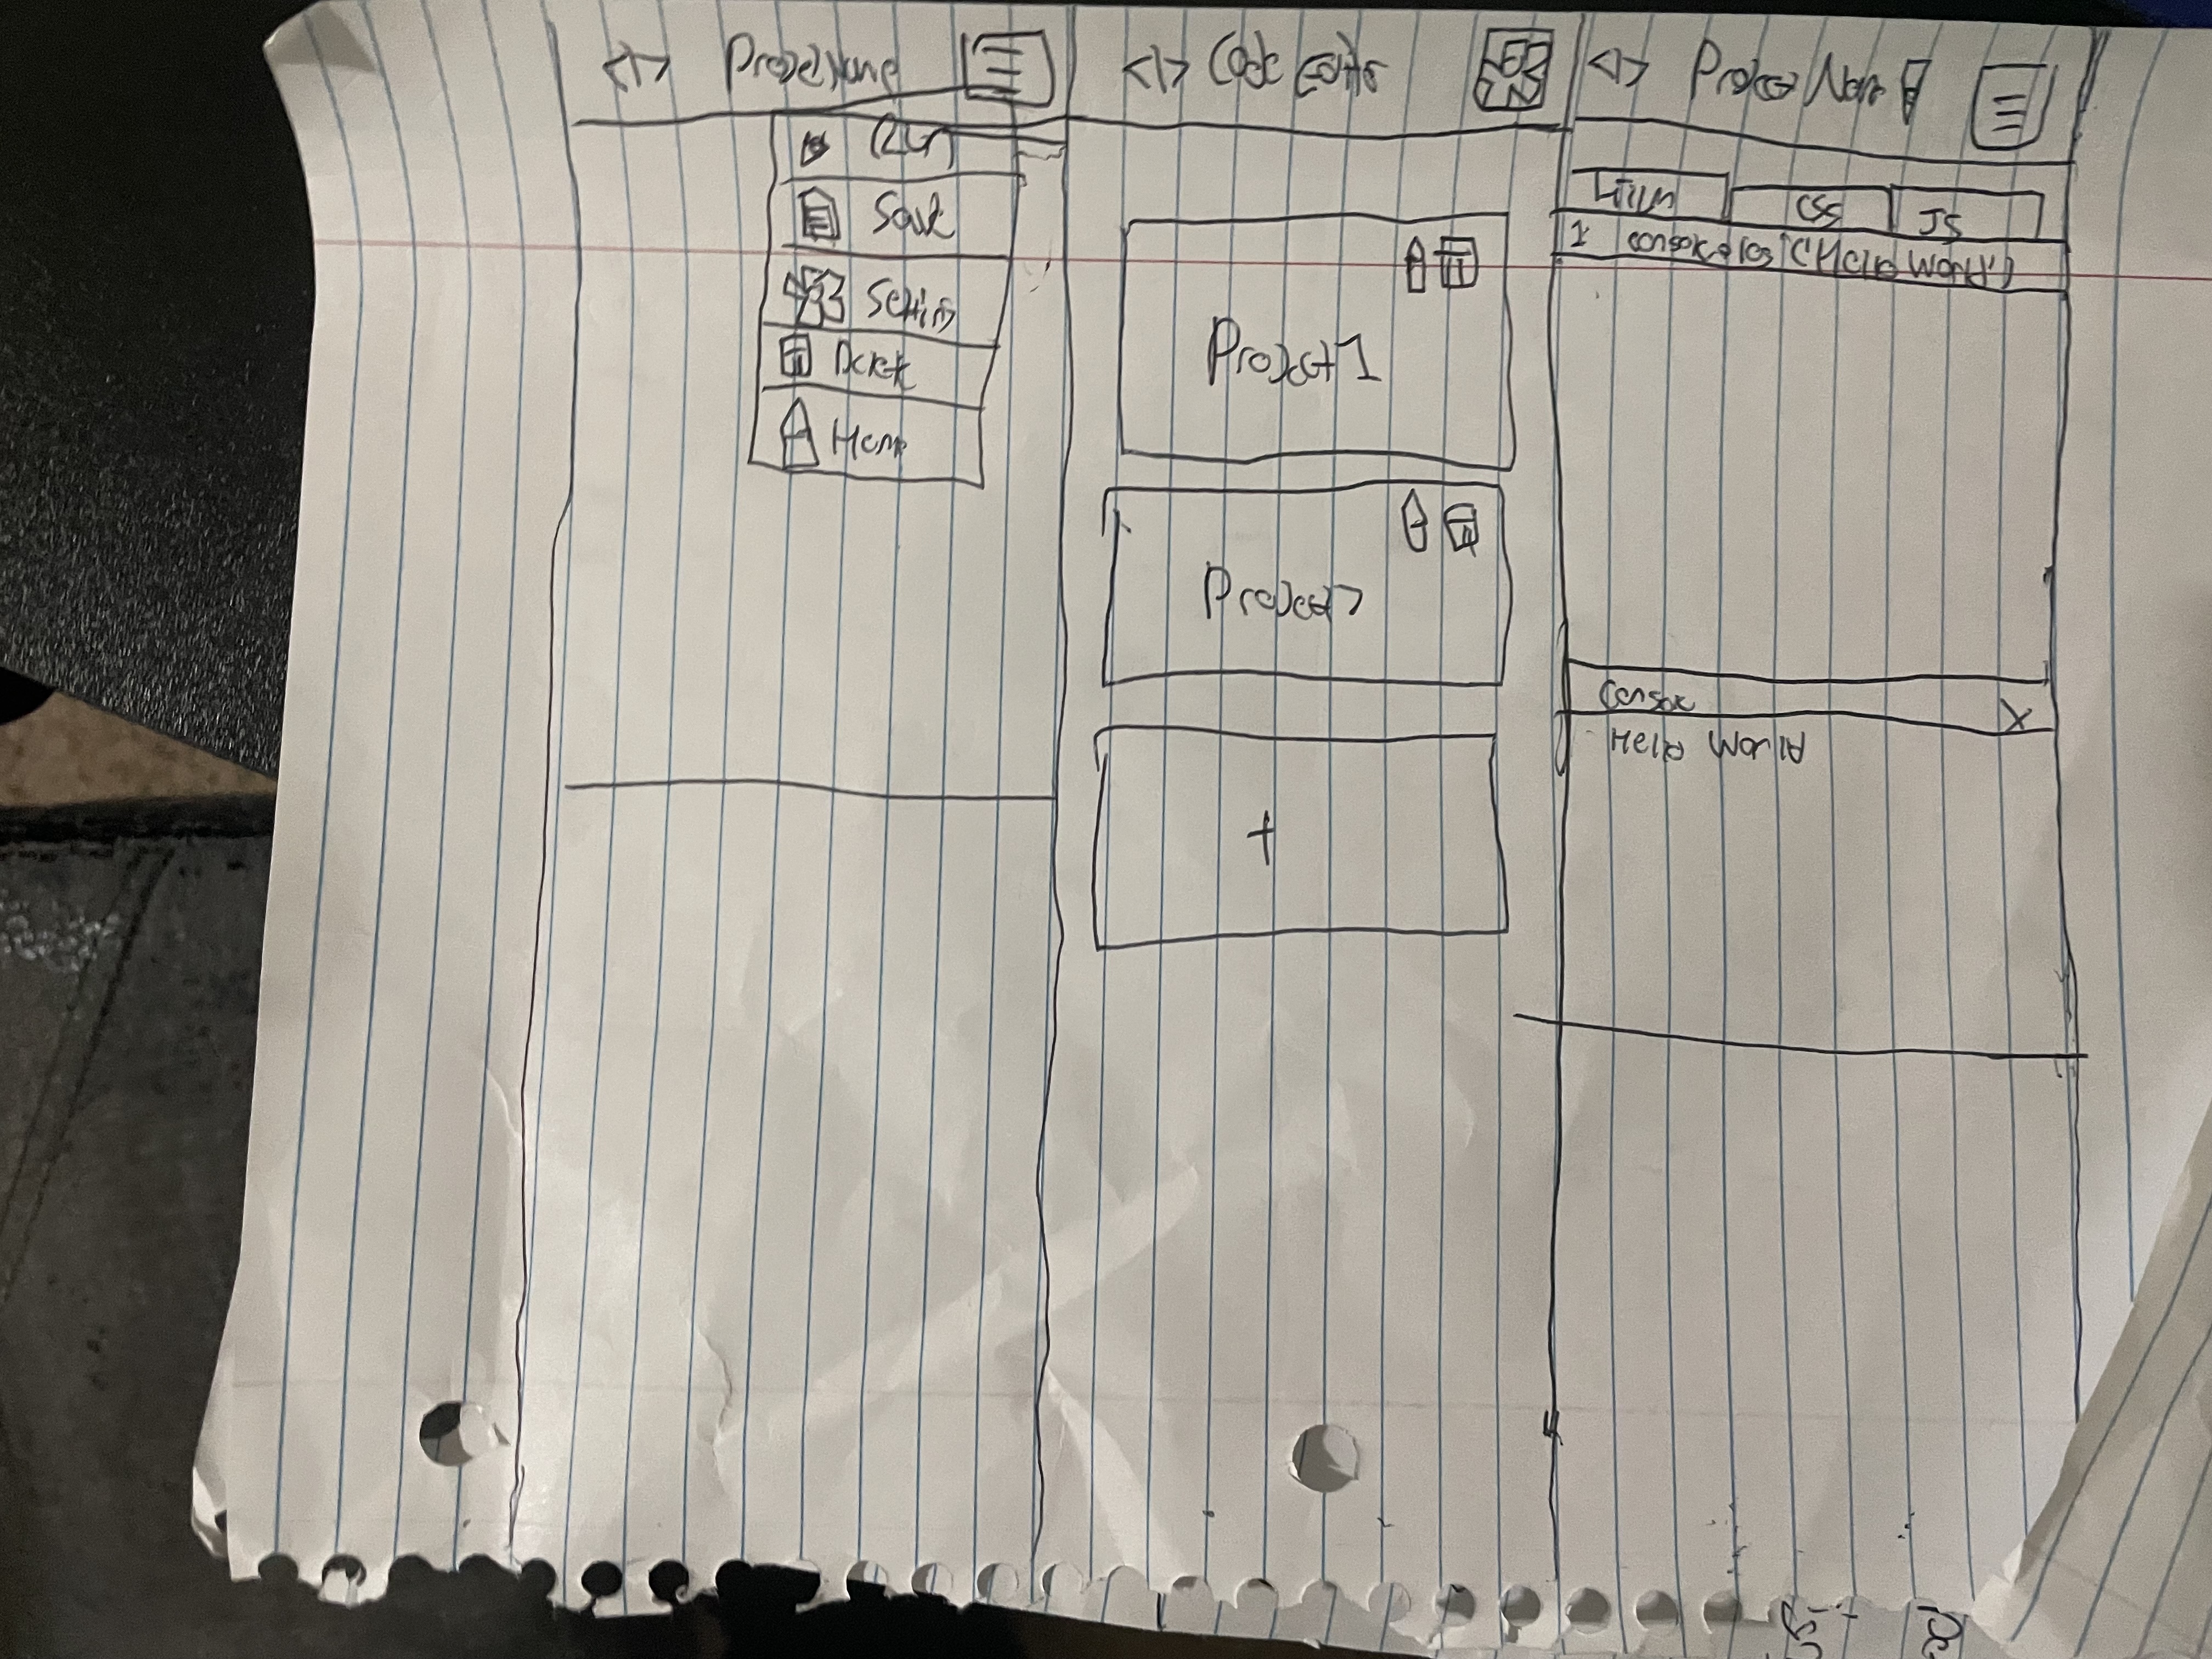 <|> Project Name
Run
Save
Settings
Delete
Home
<|> Code Editor
Project 1
Project 2
+
<|> Project Name
HTML
CSS
JS
1 console.log("Hello World")
Console X
Hello World